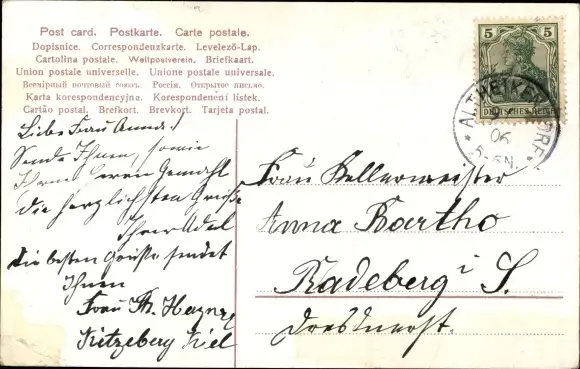 Post card. Postkarte. Carte postale.
Dopisnice. Correspondenzkarte. Levelező-Lap.
Cartolina postale. Weltpostverein. Briefkaart.
Union postale universelle. Unione postale universale.
Всемірный почтовый союзъ. Россія. Открытое письмо.
Karta korespondencyjna. Korespondenční lístek.
Cartão postal. Brefkort. Brevkort. Tarjeta postal.
5 5
DEUTSCHES REICH
ALTHEIKENDORF
06
5-6N.
Liebe Frau Anna!
Sende Ihnen, sowie
Ihrem Herrn Gemahl
die herzlichsten Grüße
Ihre Adel
Die besten Grüße sendet
Ihnen
Frau Th.
Kitzeberg Kiel
Frau Kellermeister
Anna Bartho
Radeberg i S.